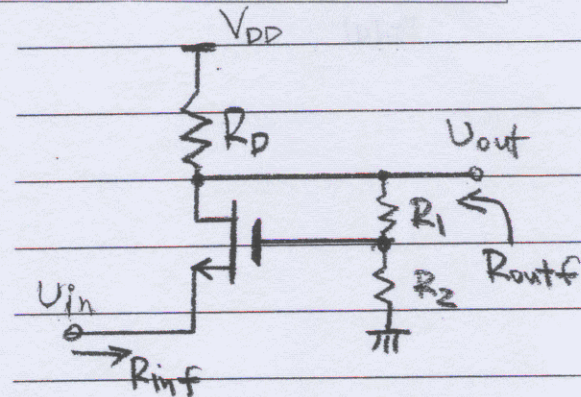 V_DD
R_D
U_out
R_1
R_outf
R_2
U_in
R_inf